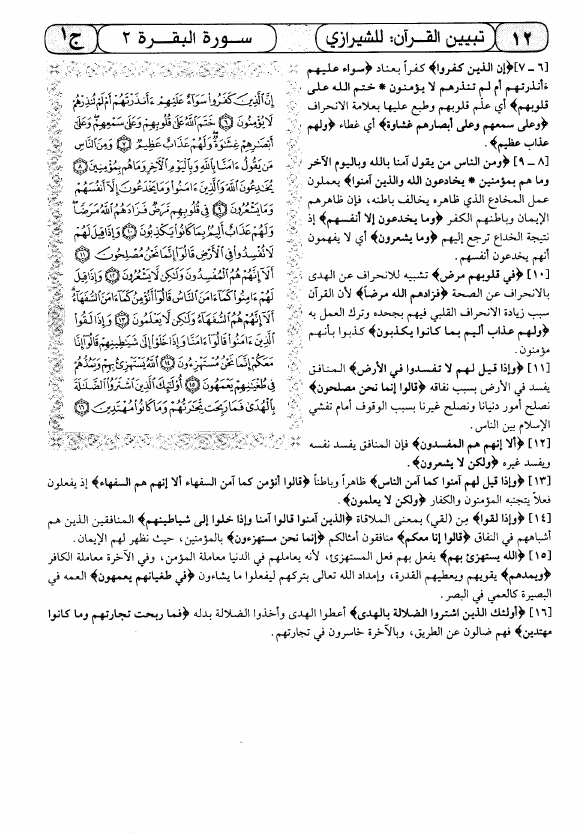 ١٢
تبيين القرآن: للشيرازي
سورة البقرة ٢
ج١
[٦ ـ ٧]﴿إن الذين كفروا﴾ كفراً بعناد ﴿سواء عليهم
ءأنذرتهم أم لم تنذرهم لا يؤمنون * ختم الله على
قلوبهم﴾ أي علّم قلوبهم وطبع عليها بعلامة الانحراف
﴿وعلى سمعهم وعلى أبصارهم غشاوة﴾ أي غطاء ﴿ولهم
عذاب عظيم﴾.
[٨ ـ ٩] ﴿ومن الناس من يقول آمنا بالله وباليوم الآخر
وما هم بمؤمنين * يخادعون الله والذين آمنوا﴾ يعملون
عمل المخادع الذي ظاهره يخالف باطنه، فإن ظاهرهم
الإيمان وباطنهم الكفر ﴿وما يخدعون إلا أنفسهم﴾ إذ
نتيجة الخداع ترجع إليهم ﴿وما يشعرون﴾ أي لا يفهمون
أنهم يخدعون أنفسهم.
[١٠] ﴿في قلوبهم مرض﴾ تشبيه للانحراف عن الهدى
بالانحراف عن الصحة ﴿فزادهم الله مرضاً﴾ لأن القرآن
سبب زيادة الانحراف القلبي فيهم بجحده وترك العمل به
﴿ولهم عذاب أليم بما كانوا يكذبون﴾ كذبوا بأنهم
مؤمنون.
[١١] ﴿وإذا قيل لهم لا تفسدوا في الأرض﴾ المنافق
يفسد في الأرض بسبب نفاقه ﴿قالوا إنما نحن مصلحون﴾
نصلح أمور دنيانا ونصلح غيرنا بسبب الوقوف أمام تفشي
الإسلام بين الناس.
[١٢] ﴿ألا إنهم هم المفسدون﴾ فإن المنافق يفسد نفسه
ويفسد غيره ﴿ولكن لا يشعرون﴾.
إِنَّ ٱلَّذِينَ كَفَرُوا۟ سَوَآءٌ عَلَيْهِمْ ءَأَنذَرْتَهُمْ أَمْ لَمْ تُنذِرْهُمْ
لَا يُؤْمِنُونَ ٦ خَتَمَ ٱللَّهُ عَلَىٰ قُلُوبِهِمْ وَعَلَىٰ سَمْعِهِمْ وَعَلَىٰ
أَبْصَٰرِهِمْ غِشَٰوَةٌ وَلَهُمْ عَذَابٌ عَظِيمٌ ٧ وَمِنَ ٱلنَّاسِ
مَن يَقُولُ ءَامَنَّا بِٱللَّهِ وَبِٱلْيَوْمِ ٱلْءَاخِرِ وَمَا هُم بِمُؤْمِنِينَ ٨
يُخَٰدِعُونَ ٱللَّهَ وَٱلَّذِينَ ءَامَنُوا۟ وَمَا يَخْدَعُونَ إِلَّآ أَنفُسَهُمْ
وَمَا يَشْعُرُونَ ٩ فِى قُلُوبِهِم مَّرَضٌ فَزَادَهُمُ ٱللَّهُ مَرَضًا
وَلَهُمْ عَذَابٌ أَلِيمٌۢ بِمَا كَانُوا۟ يَكْذِبُونَ ١٠ وَإِذَا قِيلَ لَهُمْ
لَا تُفْسِدُوا۟ فِى ٱلْأَرْضِ قَالُوٓا۟ إِنَّمَا نَحْنُ مُصْلِحُونَ ١١
أَلَآ إِنَّهُمْ هُمُ ٱلْمُفْسِدُونَ وَلَٰكِن لَّا يَشْعُرُونَ ١٢ وَإِذَا قِيلَ
لَهُمْ ءَامِنُوا۟ كَمَآ ءَامَنَ ٱلنَّاسُ قَالُوٓا۟ أَنُؤْمِنُ كَمَآ ءَامَنَ ٱلسُّفَهَآءُ
أَلَآ إِنَّهُمْ هُمُ ٱلسُّفَهَآءُ وَلَٰكِن لَّا يَعْلَمُونَ ١٣ وَإِذَا لَقُوا۟
ٱلَّذِينَ ءَامَنُوا۟ قَالُوٓا۟ ءَامَنَّا وَإِذَا خَلَوْا۟ إِلَىٰ شَيَٰطِينِهِمْ قَالُوٓا۟ إِنَّا
مَعَكُمْ إِنَّمَا نَحْنُ مُسْتَهْزِءُونَ ١٤ ٱللَّهُ يَسْتَهْزِئُ بِهِمْ وَيَمُدُّهُمْ
فِى طُغْيَٰنِهِمْ يَعْمَهُونَ ١٥ أُو۟لَٰٓئِكَ ٱلَّذِينَ ٱشْتَرَوُا۟ ٱلضَّلَٰلَةَ
بِٱلْهُدَىٰ فَمَا رَبِحَت تِّجَٰرَتُهُمْ وَمَا كَانُوا۟ مُهْتَدِينَ ١٦
[١٣] ﴿وإذا قيل لهم آمنوا كما آمن الناس﴾ ظاهراً وباطناً ﴿قالوا أنؤمن كما آمن السفهاء ألا إنهم هم السفهاء﴾ إذ يفعلون
فعلاً يتجنبه المؤمنون والكفار ﴿ولكن لا يعلمون﴾.
[١٤] ﴿وإذا لقوا﴾ مِن (لقي) بمعنى الملاقاة ﴿الذين آمنوا قالوا آمنا وإذا خلوا إلى شياطينهم﴾ المنافقين الذين هم
أشباههم في النفاق ﴿قالوا إنا معكم﴾ منافقون أمثالكم ﴿إنما نحن مستهزءون﴾ بالمؤمنين، حيث نظهر لهم الإيمان.
[١٥] ﴿الله يستهزئ بهم﴾ يفعل بهم فعل المستهزئ، لأنه يعاملهم في الدنيا معاملة المؤمن، وفي الآخرة معاملة الكافر
﴿ويمدهم﴾ يقويهم ويعطيهم القدرة، وإمداد الله تعالى بتركهم ليفعلوا ما يشاءون ﴿في طغيانهم يعمهون﴾ العمه في
البصيرة كالعمي في البصر.
[١٦] ﴿أولئك الذين اشتروا الضلالة بالهدى﴾ أعطوا الهدى وأخذوا الضلالة بدله ﴿فما ربحت تجارتهم وما كانوا
مهتدين﴾ فهم ضالون عن الطريق، وبالآخرة خاسرون في تجارتهم.